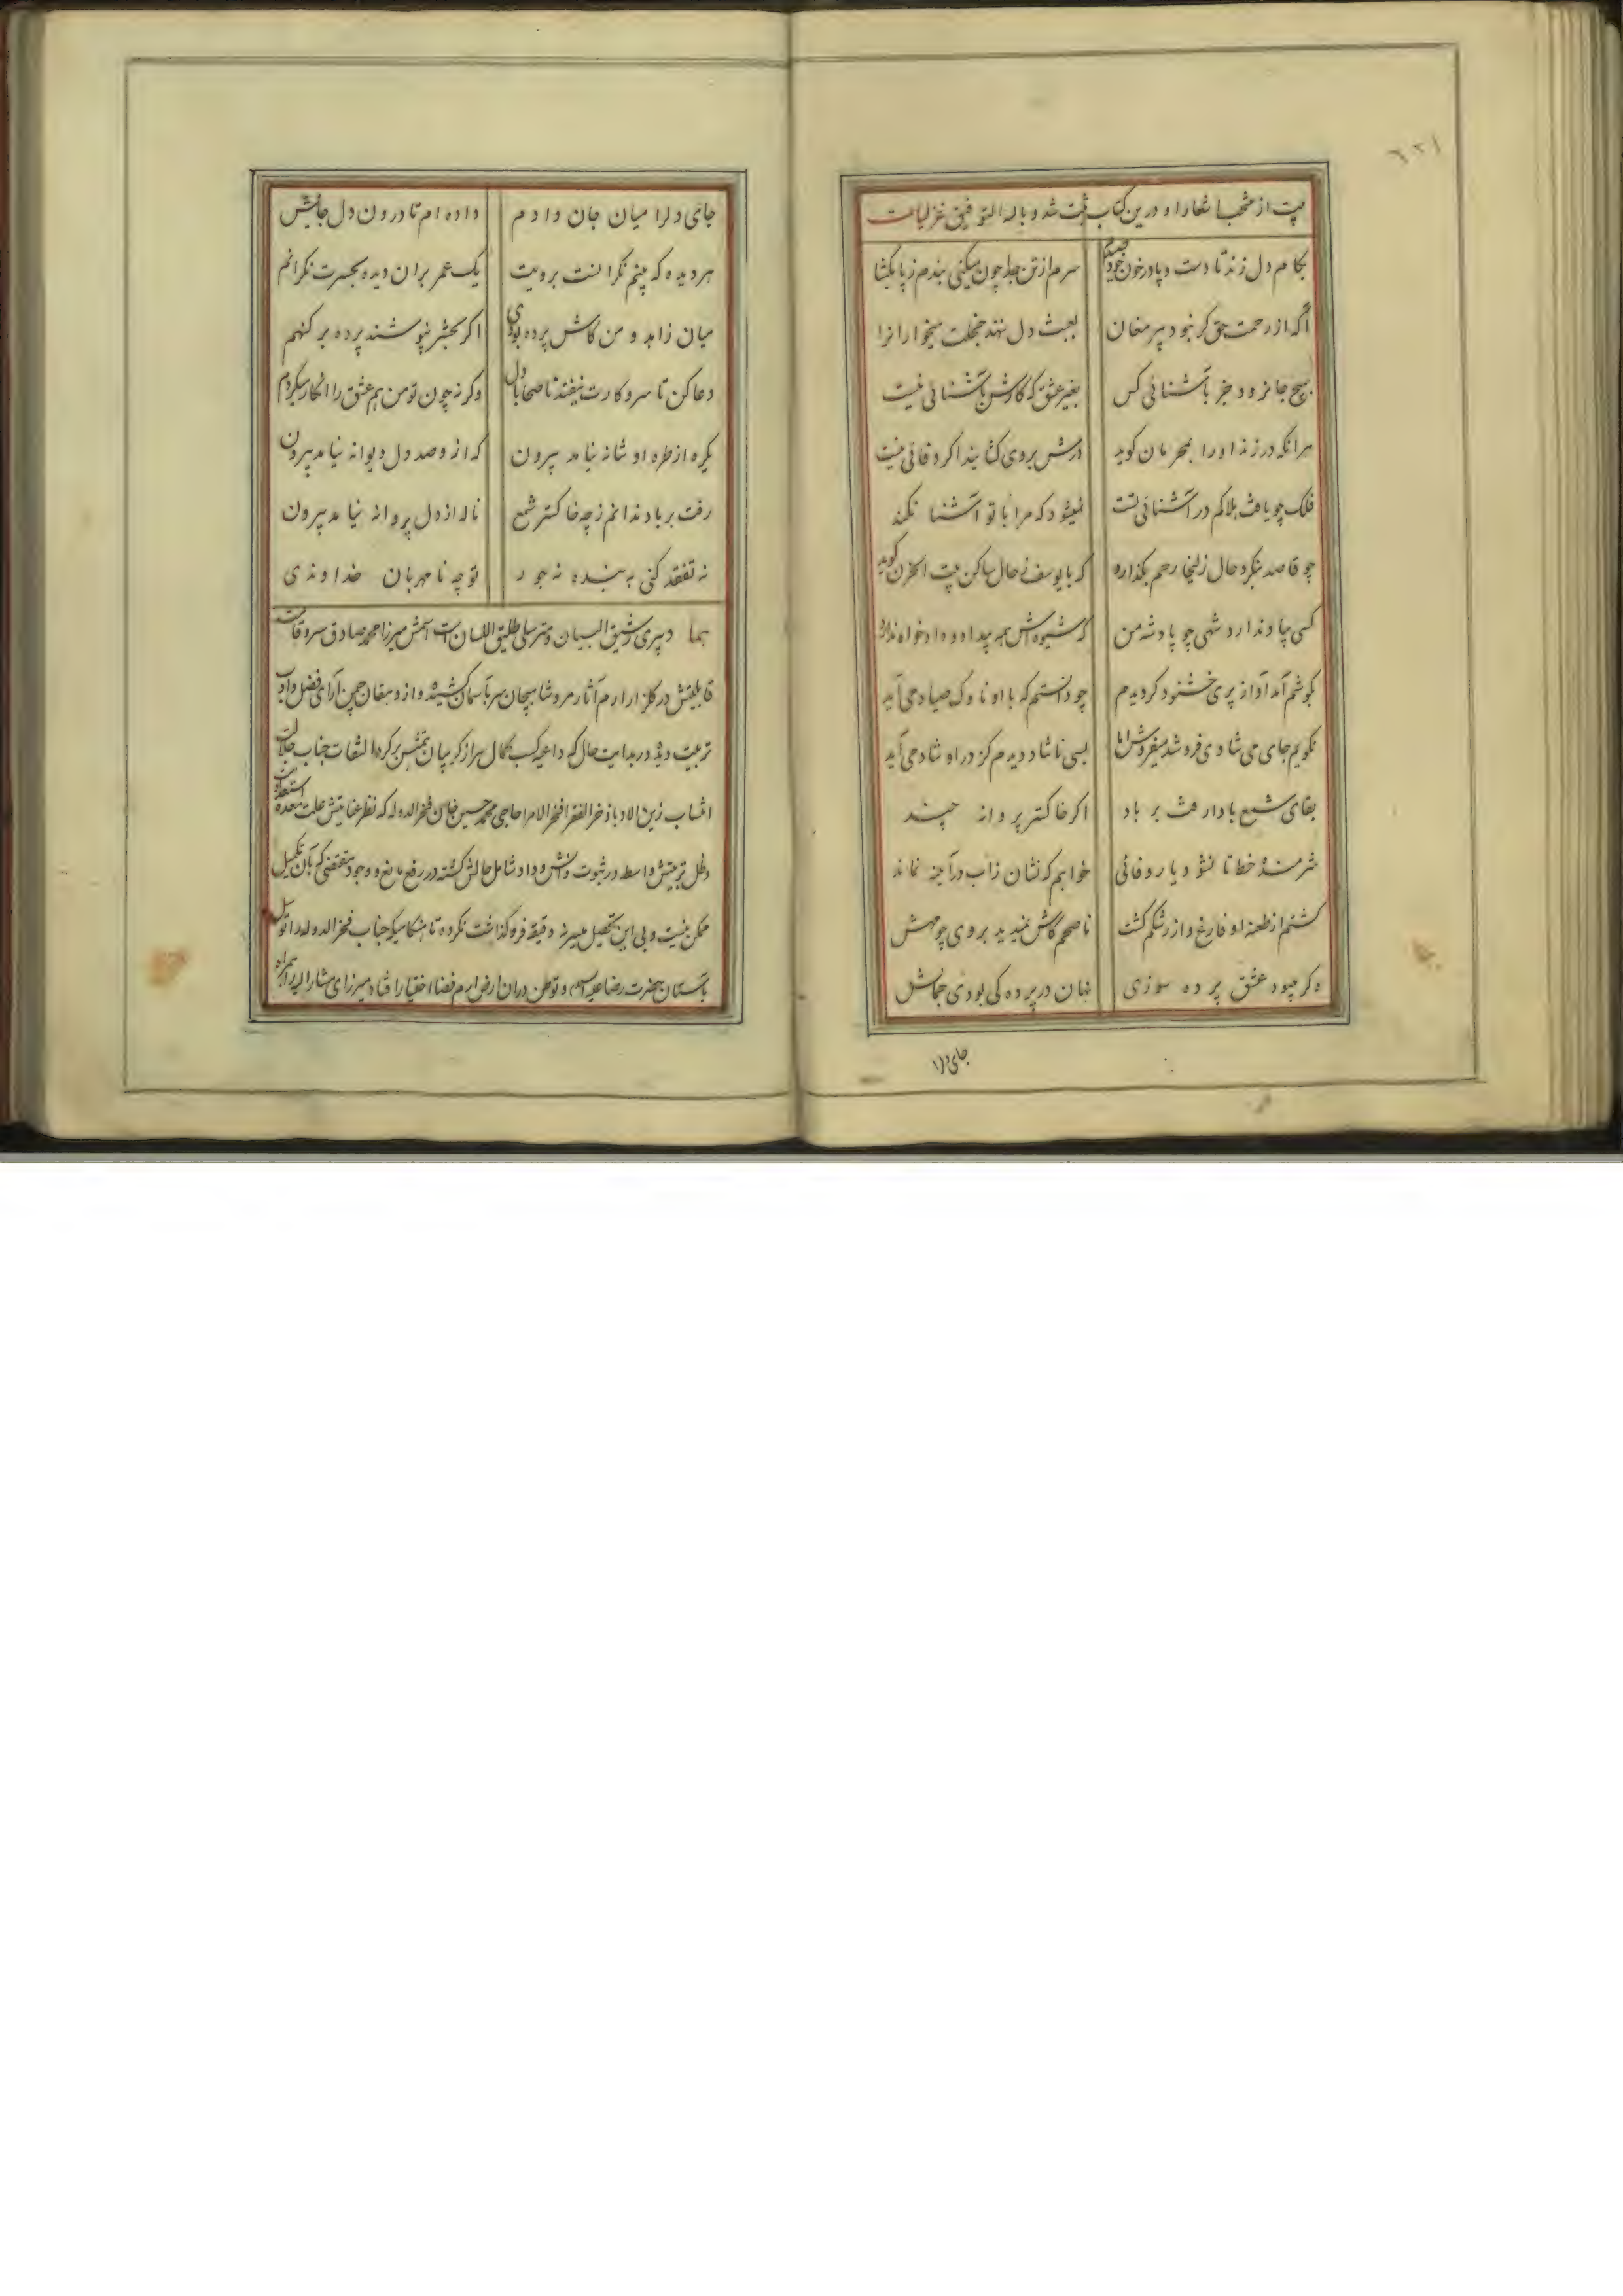 بیت از منتخب اشعار او درین کتاب ثبت شد و بالله التوفیق غزلیات
بکام دل زند تا دست و پا در خون خود صیدم سرم از تن جدا چون میکنی بندم ز پا بکشا
آکه از رحمت حق کر نبود پیر مغان بعبث دل نهد خجلت میخوارانرا
بهیچ جا نرود جز بآشنائی کس بغیر عشق که کارش بآشنائی نیست
هرانکه در زند او را بمهربان کوید درش بروی کشایند اکر وفائی نیست
فلک چو یافت هلاکم در آشنائی تست نمیشود که مرا با تو آشنا نکند
چو قاصد بنکرد حال زلیخا رحم بکذارد که با یوسف ز حال ساکن بیت الحزن کوید
کسی یاد ندارد شهی چو پادشه من که شیوه‌اش همه بیداد و دادخواه ندارد
بکوشم آمد آواز پری خشنود کردیدم چو دانستم که با او ناوک صیاد می‌آید
نکویم جای می شادی فروشد میفروش اما بسی ناشاد دیدم کز در او شاد می‌آید
بقای شمع بادا رفت بر باد اکر خاکستر پروانه چند
شرمنده خطا تا نشود یار وفائی خواهم که نشان زاب در آینه نماند
کشتم از طعنه او فارغ و از رشکم کشت ناصحم کاش نمیدید بروی چو مهش
دکر میبود عشق پرده سوزی نهان در پرده کی بودی جمالش
جای دلرا
جای دلرا میان جان دادم داده ام تا درون دل جایش
هر دیده که بینم نکرانست برویت یک عمر بران دیده بحسرت نکرانم
میان زاهد و من کاش پرده بودی اکر بحشر نپوشند پرده بر کنهم
دعا کن تا سر و کارت نیفتد ناصحا با دل وکرنه چون تو من هم عشق را انکار میکردم
یکره از طره او شانه نیامد بیرون که ازو صد دل دیوانه نیامد بیرون
رفت بر باد ندانم ز چه خاکستر شمع ناله از دل پروانه نیامد بیرون
نه تفقد کنی به بنده نه جور تو چه نامهربان خداوندی
هما دبیری رشیق البیان و مترسلی طلیق اللسان است اسمش میرزا محمد صادق سرو قامت
قابلیتش در کلزار ارم آثار مرو شاهیجان سر بآسمان کشیده و از دهقان چمن آرای فضل و ادب
تربیت دیده در بدایت حال که داعیه کسب کمال سر از کریبان همتش بر کرد التفات جناب جلالت
انتساب زین البلاد ذخر الفقرا فخر الامرا حاجی محمد حسین خان فخر الدوله که نظر عنایتش علت معده استعداد است
و ظل تربیتش واسط در ثبوت دانش و داد شامل حالش کشته در رفع مانع و وجود مقتضی که بآن تکمیل
ممکن نیست و بی این تحصیل میسر نه دقیقه فرو کذاشت نکرده تا هنکامیکه جناب فخر الدوله را توسل
بآستان حضرت رضا علیه السلام و توطن دران ارض ارم فضا اختیار افتاد میرزای مشار الیه را همراه